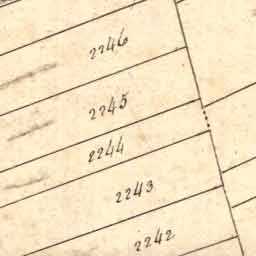 2246
2245
2244
2243
2242